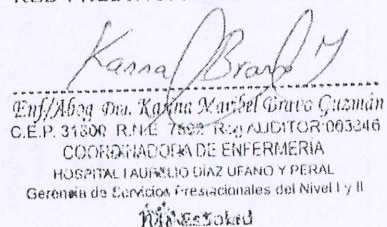 Karina Bravo G
Enf/Abog Dra. Karina Maribel Bravo Guzmán
C.E.P. 31800 R.N.E 7892 Reg AUDITOR 003346
COORDINADORA DE ENFERMERIA
HOSPITAL I AURELIO DIAZ UFANO Y PERAL
Gerencia de Servicios Prestacionales del Nivel I y II
EsSalud